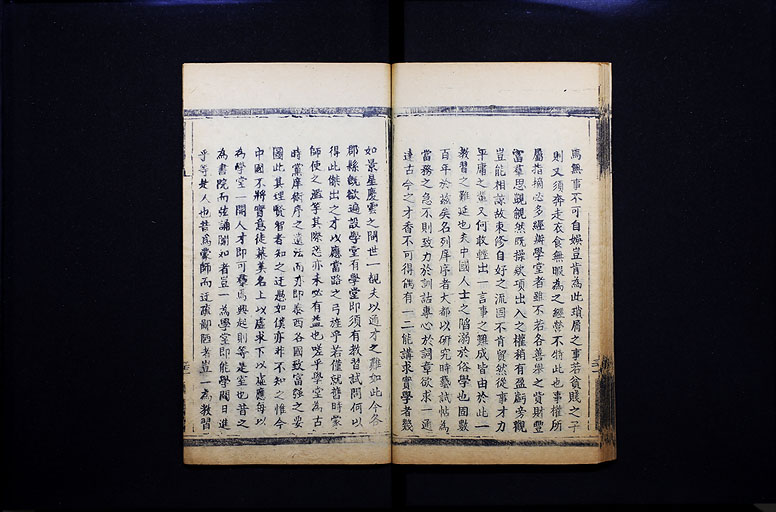 焉無事不可自娛豈肯為此瑣屑之事若貧賤之子
則又須奔走衣食無暇為之經營不特此也事權所
屬指摘必多經辦學堂者雖不若各善舉之貲財豐
富羣思覬覦然既操欵項出入之權稍有盈虧旁觀
豈能相諒故束修自好之流固不肯貿然從事才力
平庸之輩又何敢輕出一言事之難成皆由於此一
教習之難延也夫中國人士之陷溺於俗學也固數
百年於茲矣名列庠序者大都以研究時藝試帖為
當務之急不則致力於訓詁專心於詞章欲求一通
達古今之才杳不可得偶有一二能講求實學者幾
如景星慶雲之閒世一覩夫以通才之難如此今各
郡縣旣欲遍設學堂有學堂即須有教習試問何以
得此傑出之才以應當路之弓旌乎若僅就舊時蒙
師使之濫竽其際恐亦未必有益也嗟乎學堂為古
時黨庠術序之遺法而亦即泰西各國致富強之要
圖此其理賢智者知之迂愚如僕亦非不知之惟今
中國不將實意徒慕美名上以虛求下以虛應每以
為學堂一開人才即可羣焉興起則等是室也昔之
為書院而弦誦闃如者豈一為學堂即能學問日進
乎等是人也昔為蒙師而迂疎鄙陋者豈一為教習